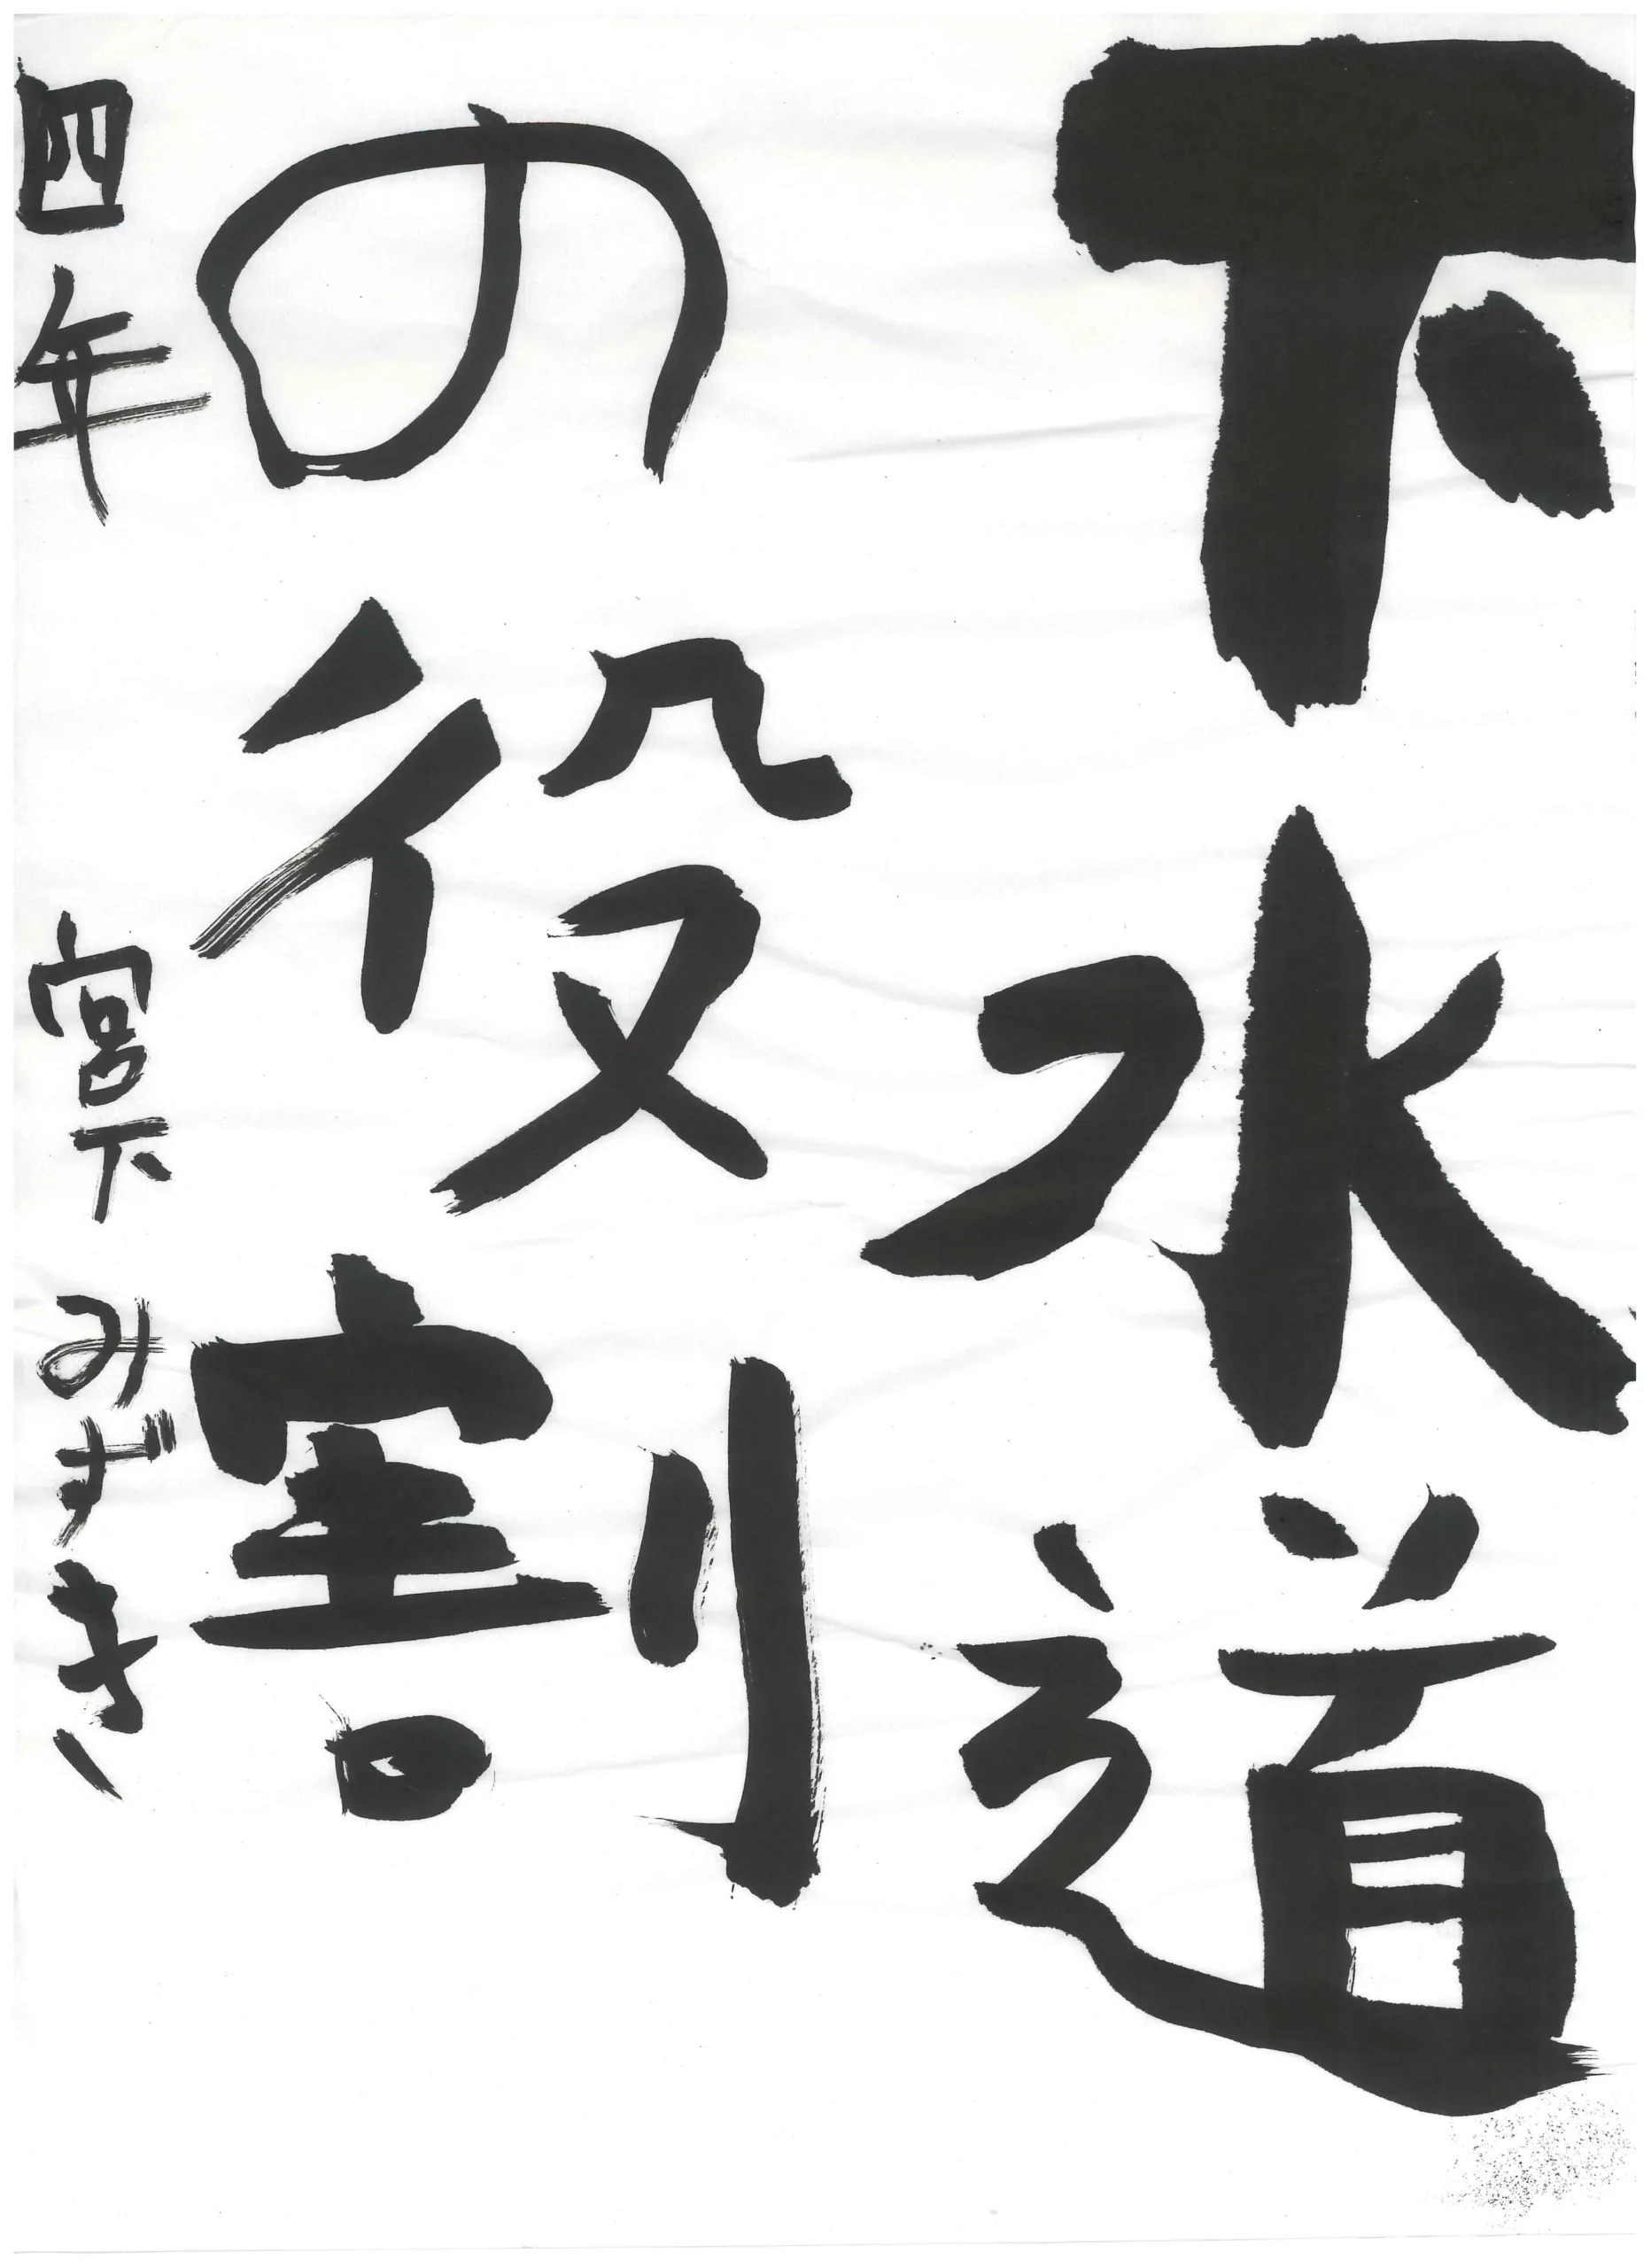 下水道
の役割
四年 宮下みずき